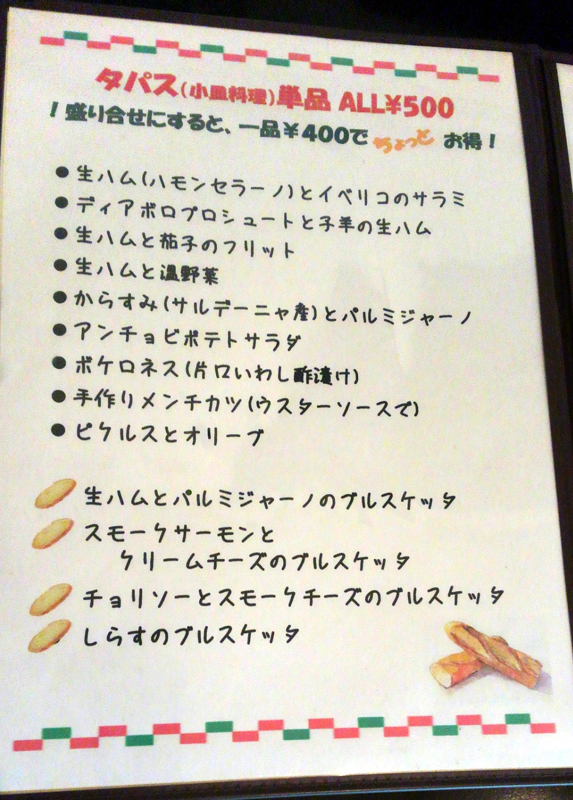 タパス(小皿料理)単品 ALL¥500
!盛り合せにすると、一品¥400でちょっとお得!
●生ハム(ハモンセラーノ)とイベリコのサラミ
●ディアボロプロシュートと子羊の生ハム
●生ハムと茄子のフリット
●生ハムと温野菜
●からすみ(サルデーニャ産)とパルミジャーノ
●アンチョビポテトサラダ
●ボケロネス(片口いわし酢漬け)
●手作りメンチカツ(ウスターソースで)
●ピクルスとオリーブ
生ハムとパルミジャーノのブルスケッタ
スモークサーモンと
クリームチーズのブルスケッタ
チョリソーとスモークチーズのブルスケッタ
しらすのブルスケッタ